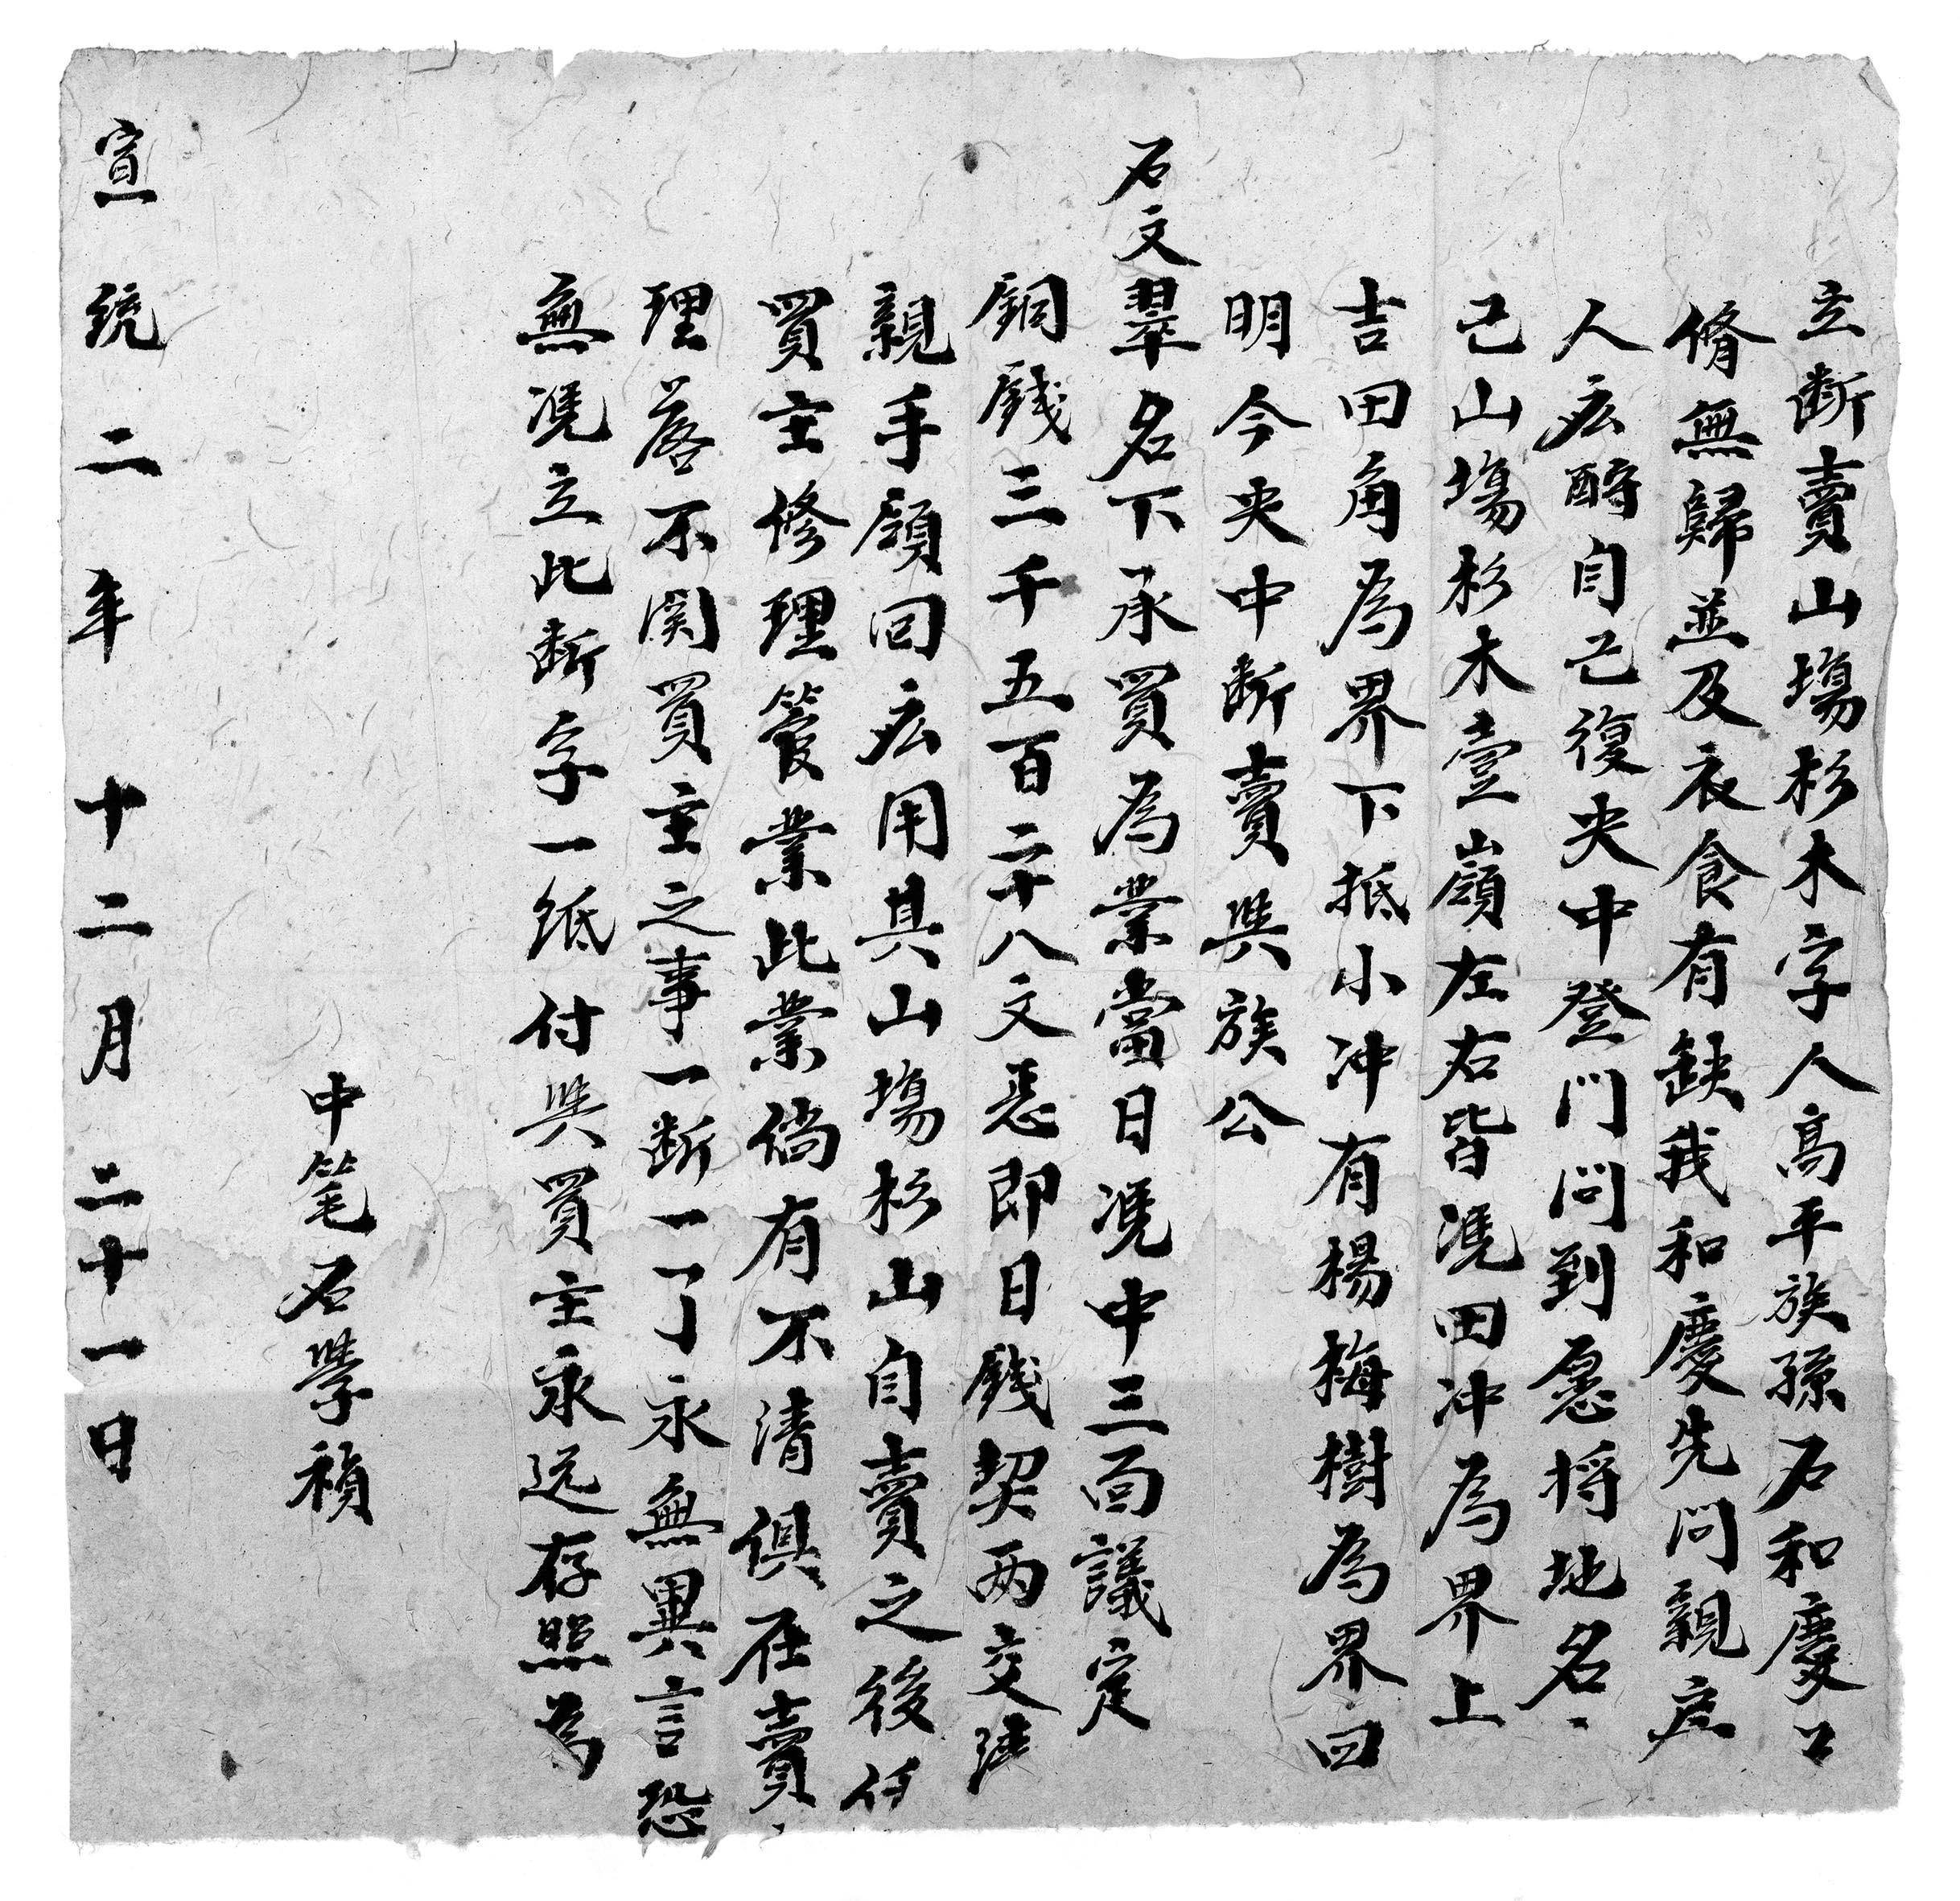 立断賣山塲杉木字人高平族孫石和慶口
脩無歸並及衣食有缺我和慶先問親庄
人広酧自己復央中登門問到愿将地名、
己山塲杉木壹嶺左右皆凴田冲為界上
吉田角為界下抵小冲有楊梅樹為界四
明今央中断賣與族公
石文翠名下承買為業當日凴中三面議定
銅錢三千五百二十八文悉即日錢契两交清
親手領回広用其山塲杉山自賣之後任
買主修理管業此業倘有不清俱在賣、
理落不関買主之事一断一了永無異言恐
無凴立此断字一纸付與買主永远存照為
中笔石學禎
宣統二年十二月二十一日